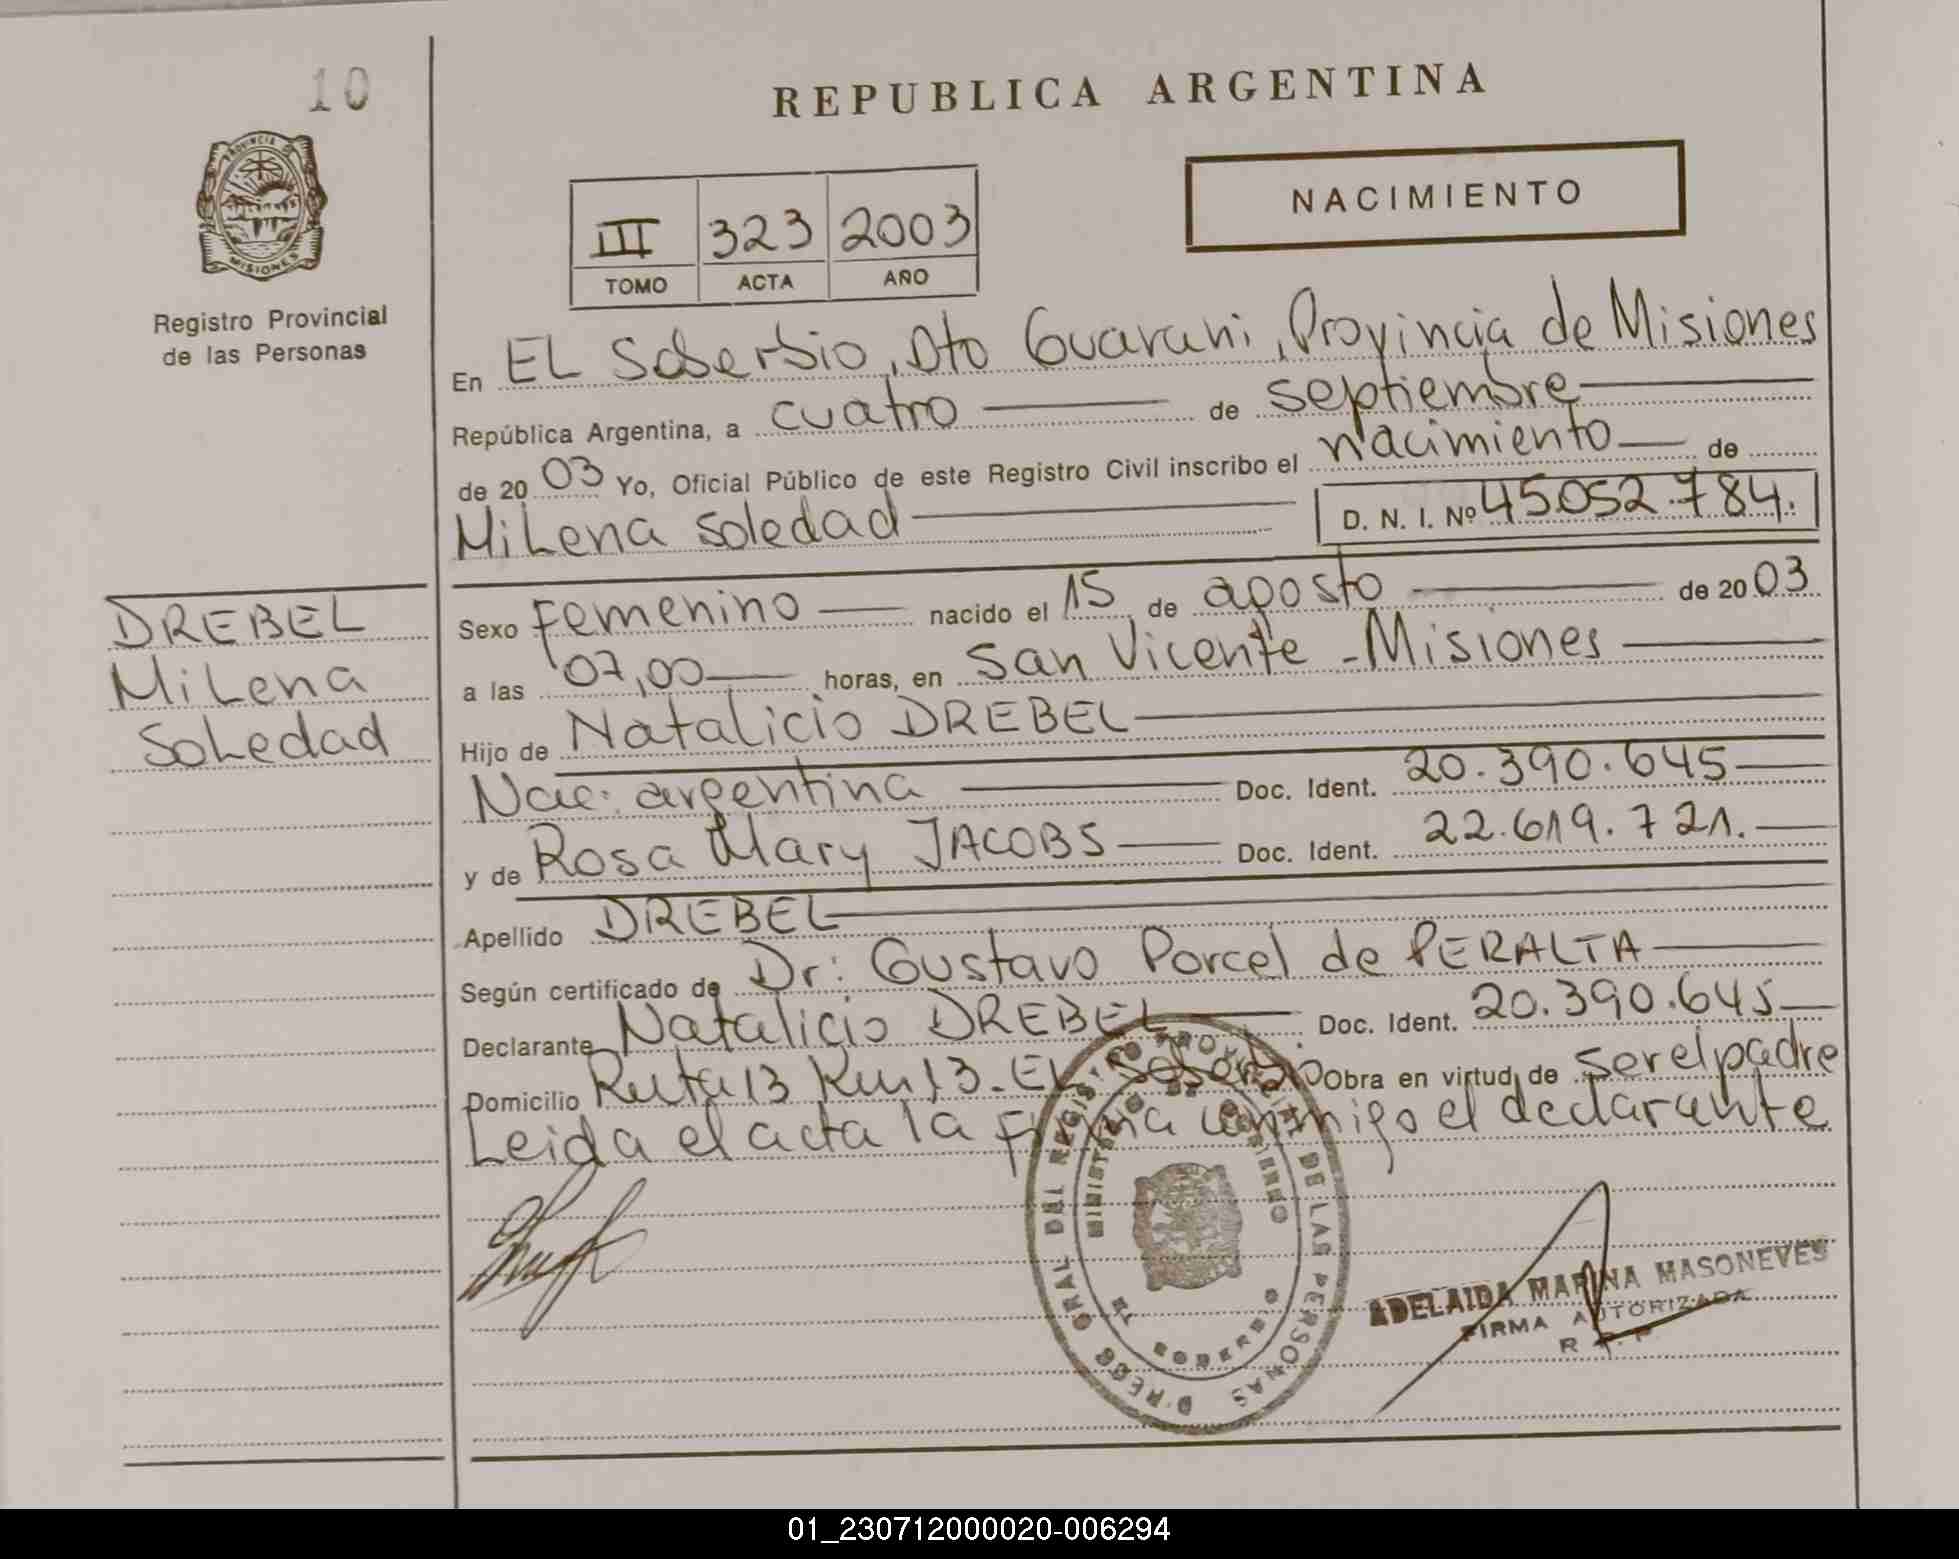 10
PROVINCIA DE
MISIONES
Registro Provincial
de las Personas
REPUBLICA ARGENTINA
III 323 2003
TOMO ACTA AÑO
NACIMIENTO
En EL Soberbio, Dto Guarani, Provincia de Misiones
República Argentina, a cuatro de septiembre
de 2003 Yo, Oficial Público de este Registro Civil inscribo el nacimiento de
MiLena Soledad D. N. I. Nº 45.052.784.
DREBEL
MiLena
Soledad
Sexo Femenino nacido el 15 de agosto de 2003
a las 07,00 horas, en San Vicente - Misiones
Hijo de Natalicio DREBEL
Nac: argentina Doc. Ident. 20.390.645
y de Rosa Mary JACOBS Doc. Ident. 22.619.721.
Apellido DREBEL
Según certificado de Dr: Gustavo Porcel de PERALTA
Declarante Natalicio DREBEL Doc. Ident. 20.390.645
Domicilio Ruta 13 Km 13 - EL Soberbio Obra en virtud de ser el padre
Leida el acta la firma conmigo el declarante
ADELAIDA MARINA MASONEVES
FIRMA AUTORIZADA
01_230712000020-006294